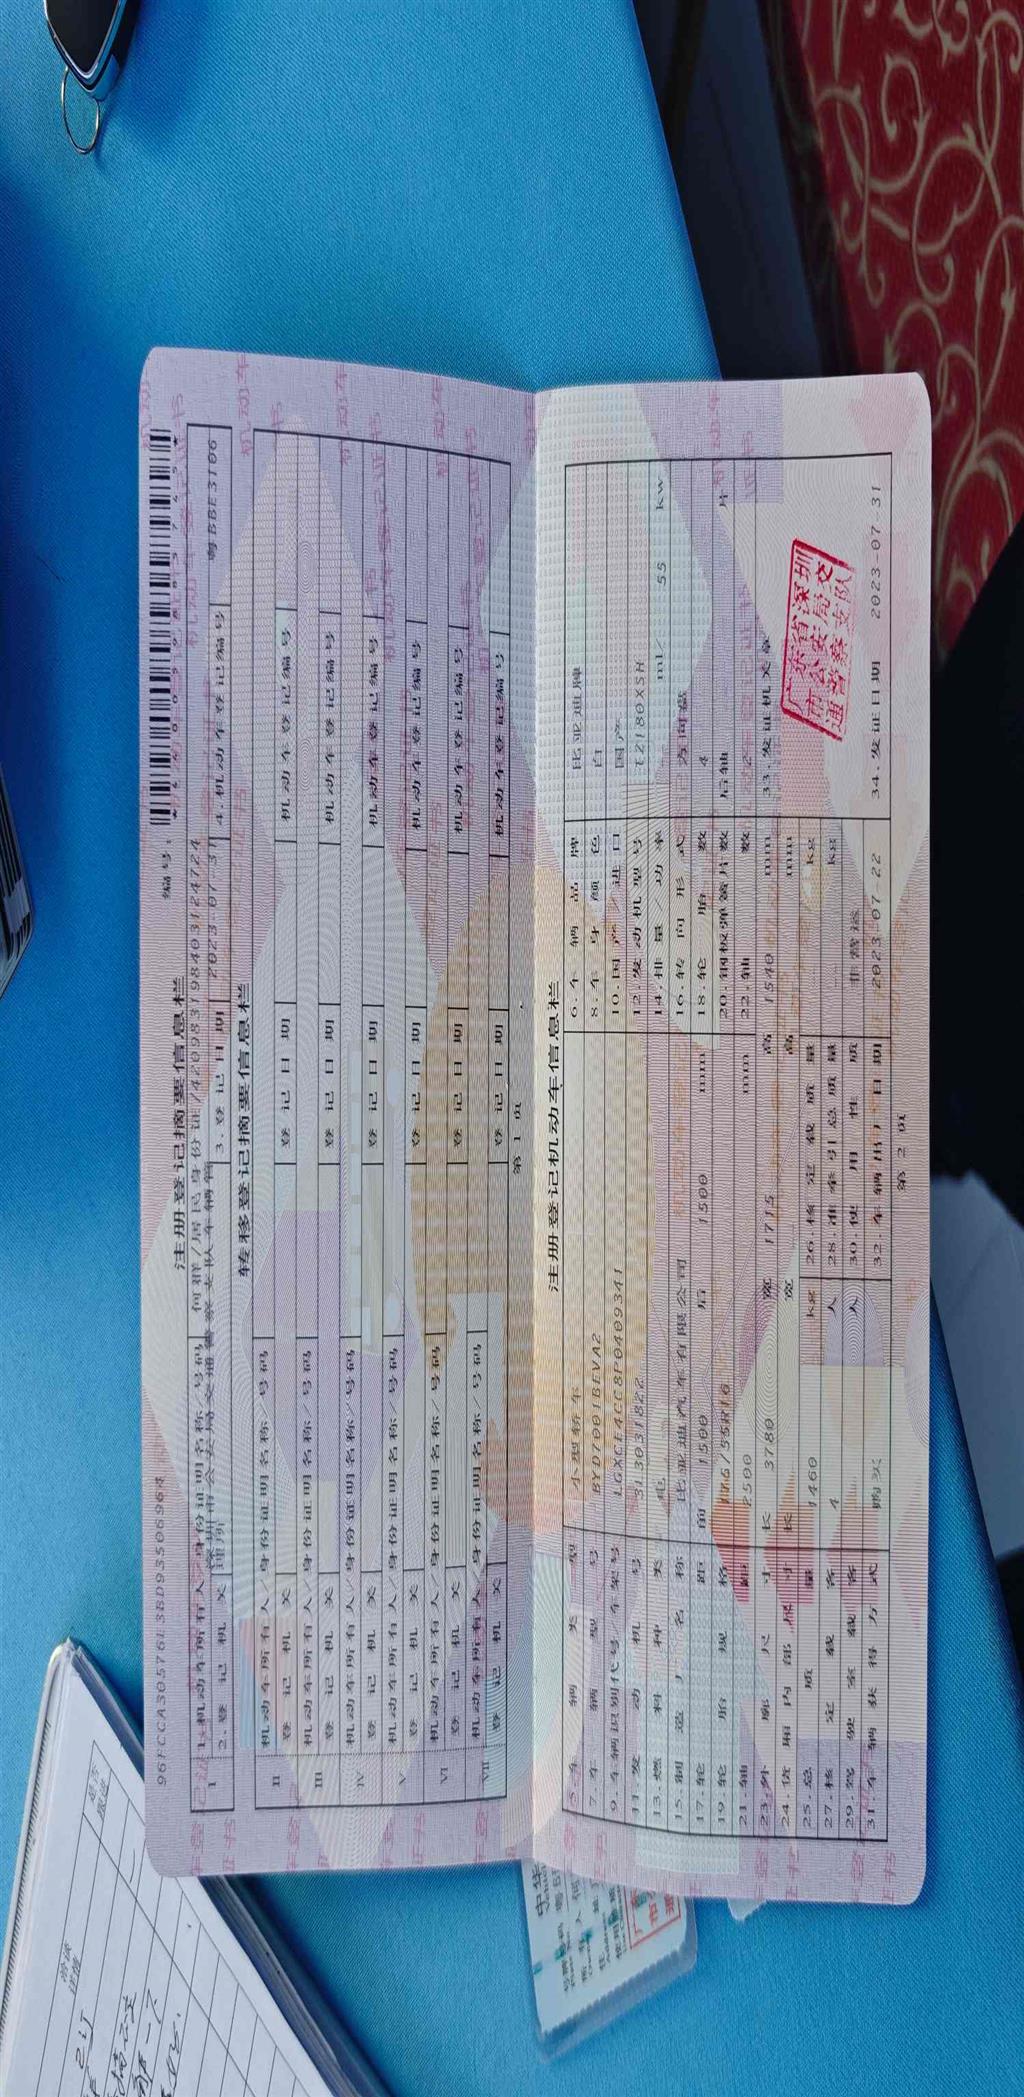 注册登记摘要信息栏
编号:
I
1.机动车所有人/身份证明名称/号码 何群/居民身份证/420983198403124724
2.登记机关 深圳市公安局交通警察支队车辆管理所 3.登记日期 2023-07-31 4.机动车登记编号 粤BBE3106
转移登记摘要信息栏
II 机动车所有人/身份证明名称/号码
登记机关 登记日期 机动车登记编号
III 机动车所有人/身份证明名称/号码
登记机关 登记日期 机动车登记编号
IV 机动车所有人/身份证明名称/号码
登记机关 登记日期 机动车登记编号
V 机动车所有人/身份证明名称/号码
登记机关 登记日期 机动车登记编号
VI 机动车所有人/身份证明名称/号码
登记机关 登记日期 机动车登记编号
VII 机动车所有人/身份证明名称/号码
登记机关 登记日期 机动车登记编号
第1页
注册登记机动车信息栏
5.车辆类型 小型轿车 6.车辆品牌 比亚迪牌
7.车辆型号 BYD7001BEVA2 8.车身颜色 白
9.车辆识别代号/车架号 LGXCE4CC8P0409341 10.国产/进口 国产
11.发动机号 3L3031822 12.发动机型号 TZ180XSH
13.燃料种类 电 14.排量/功率 ml/ 55 kw
15.制造厂名称 比亚迪汽车有限公司 16.转向形式 方向盘
17.轮距 前 1500 后 1500 mm 18.轮胎数 4
19.轮胎规格 20.钢板弹簧片数 后轴 片
21.轴距 2500 mm 22.轴数 2
23.外廓尺寸 长 3780 宽 1715 高 1540 mm
24.货厢内部尺寸 长 宽 高 mm
33.发证机关章
广东省深圳市公安局交通警察支队
25.总质量 1460 kg 26.核定载质量 kg
27.核定载客 4 人 28.准牵引总质量 kg
29.驾驶室载客 人 30.使用性质 非营运
31.车辆获得方式 购买 32.车辆出厂日期 2023-07-22 34.发证日期 2023-07-31
第2页